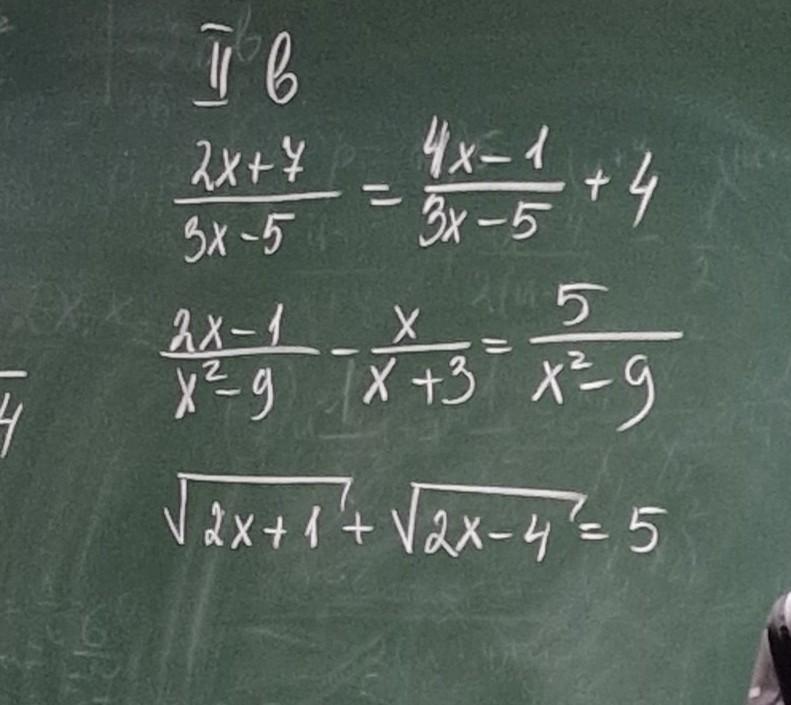 II в
(2x+7)/(3x-5) = (4x-1)/(3x-5) + 4
(2x-1)/(x²-9) - x/(x+3) = 5/(x²-9)
√(2x+1) + √(2x-4) = 5
4